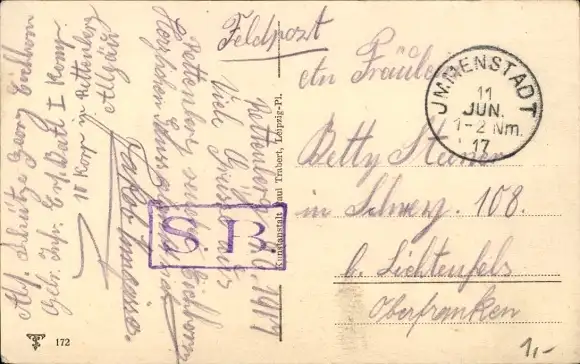 Feldpost
Rettenberg 10.6.1917
Viele Grüße aus
Rettenberg sendet Eichhorn
Herzlichen Gruss
Jakob
Abs. Schütze Georg Eichhorn
Gebr. Jägr. Ers. Batl I Komp.
10 Korp in Rettenberg
Allgäu
S. B.
Kunstanstalt Paul Trabert, Leipzig-Pl.
172
IMMENSTADT
11
JUN.
1-2 Nm.
17
An Fräulein
Betty Steiner
in Schwerz. 108.
b. Lichtenfels
Oberfranken
1,-